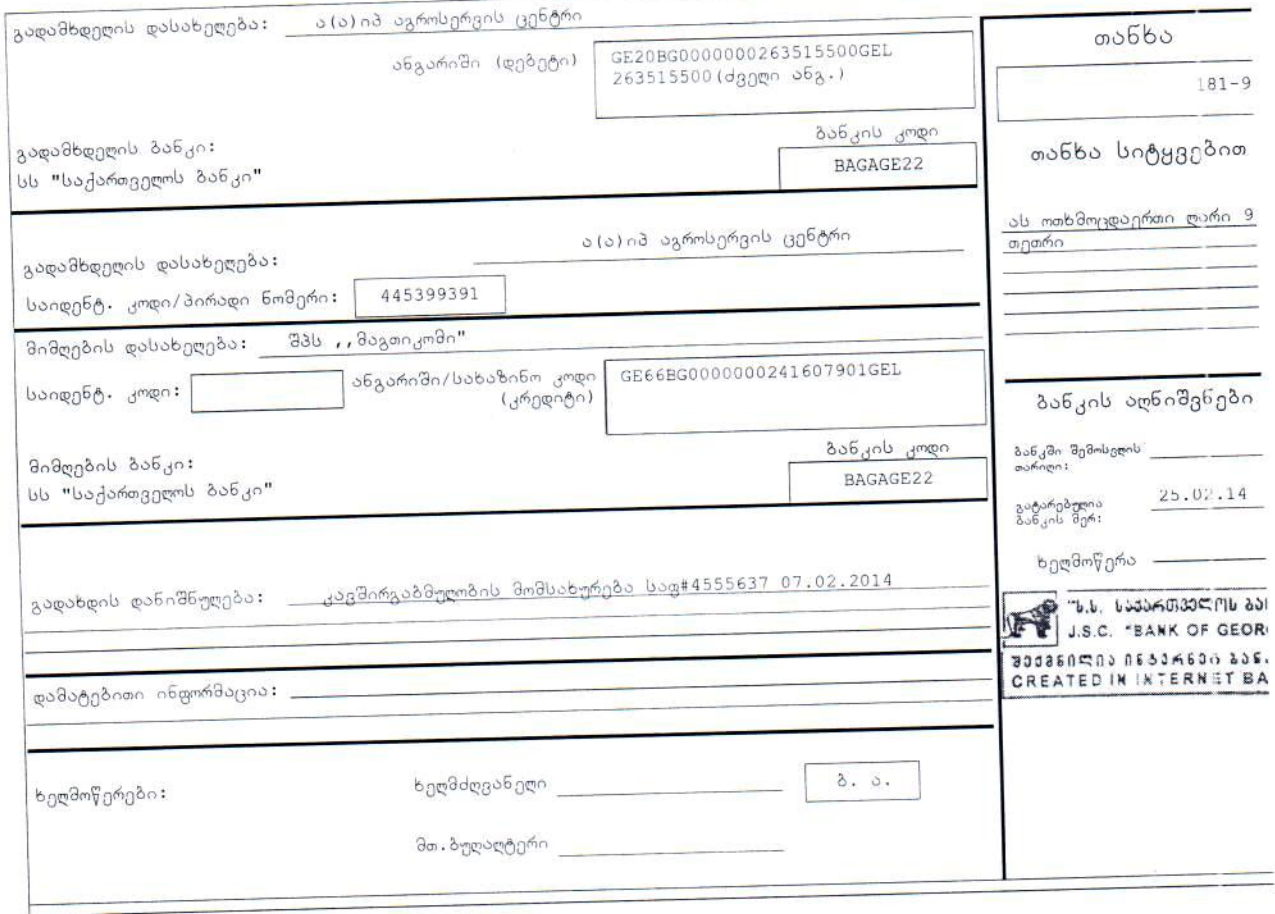 გადამხდელის დასახელება: ა(ა)იპ აგროსერვის ცენტრი
ანგარიში (დებეტი) GE20BG0000000263515500GEL
263515500(ძველი ანგ.)
გადამხდელის ბანკი:
სს "საქართველოს ბანკი"
ბანკის კოდი
BAGAGE22
გადამხდელის დასახელება: ა(ა)იპ აგროსერვის ცენტრი
საიდენტ. კოდი/პირადი ნომერი: 445399391
მიმღების დასახელება: შპს ,,მაგთიკომი"
საიდენტ. კოდი:
ანგარიში/სახაზინო კოდი
(კრედიტი)
GE66BG0000000241607901GEL
მიმღების ბანკი:
სს "საქართველოს ბანკი"
ბანკის კოდი
BAGAGE22
გადახდის დანიშნულება: კავშირგაბმულობის მომსახურება საფ#4555637 07.02.2014
დამატებითი ინფორმაცია:
ხელმოწერები:
ხელმძღვანელი
ბ. ა.
მთ.ბუღალტერი
თანხა
181-9
თანხა სიტყვებით
ას ოთხმოცდაერთი ლარი 9
თეთრი
ბანკის აღნიშვნები
ბანკში შემოსვლის
თარიღი:
გატარებულია
ბანკის მერ:
25.02.14
ხელმოწერა
"ს.ს. საქართველოს ბა
J.S.C. "BANK OF GEOR
შექმნილია ინტერნეტ ბან
CREATED IN INTERNET BA